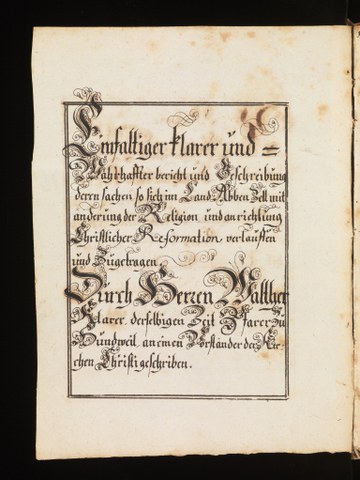 Einfaltiger klarer und =
Wahrhaffter bericht und Beschreibung
deren sachen so sich im Land Abben Zell mit
anderung der Religion, und anrichtung
Christlicher Reformation verlauffen
und Zugetragen.
Durch Herren Walther
Klarer. derselbigen Zeit Pfarer Zu
Hundweil an einen Vorstander der Kir-
chen Christi geschriben.